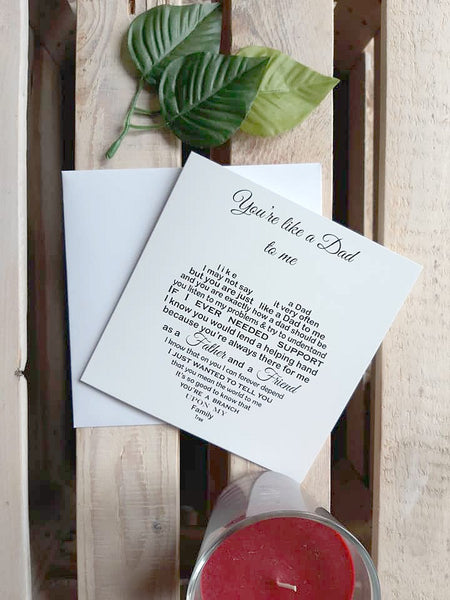 You're like a Dad
to me
like a Dad
I may not say it very often
but you are just like a Dad to me
and you are exactly how a dad should be
you listen to my problems & try to understand
IF I EVER NEEDED SUPPORT
I know you would lend a helping hand
because you're always there for me
as a Father and a Friend
I know that on you I can forever depend
I JUST WANTED TO TELL YOU
that you mean the world to me
It's so good to know that
YOU'RE A BRANCH
UPON MY
Family
Tree